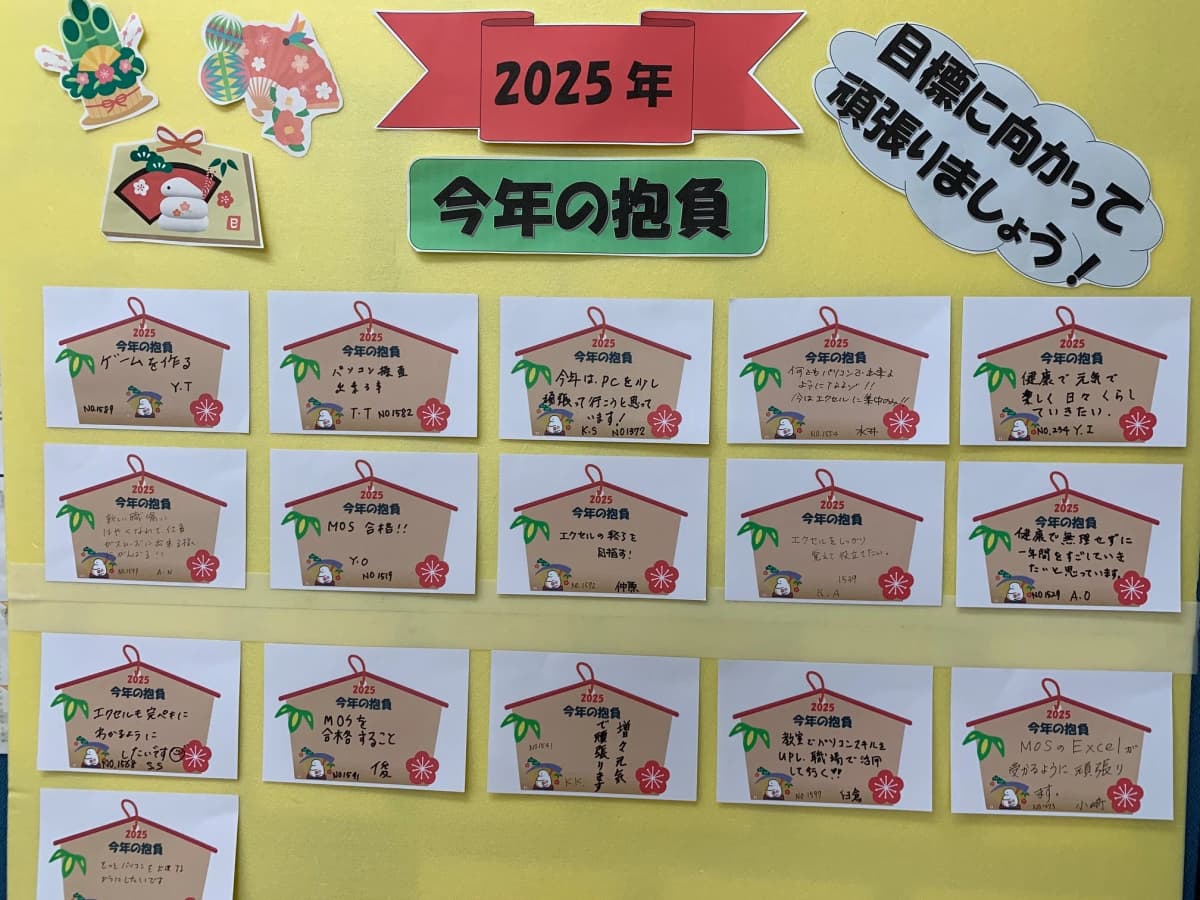 2025年
今年の抱負
目標に向かって
頑張りましょう!
巳
2025
今年の抱負
ゲームを作る
Y.T
NO.1589
2025
今年の抱負
パソコン
出来る事
T.T NO1582
2025
今年の抱負
今年は、PCを少し
頑張って行こうと思って
います!
K.S NO1372
2025
今年の抱負
何でもパソコンで出来る
ようになるゾ!!
今はエクセルに集中のみ!!
2025
今年の抱負
健康で元気で
楽しく日々くらし
ていきたい.
NO.234 Y.I
2025
今年の抱負
新しい職場に
はやくなれて仕事
がスムーズに出来る様に
がんばる!!
A.N
2025
今年の抱負
MOS 合格!!
Y.O
NO1519
2025
今年の抱負
エクセルの終了を
目指す!
NO.1592 仲原
2025
今年の抱負
エクセルをしっかり
覚えて役立てたい.
1539
K.A
2025
今年の抱負
健康で無理せずに
一年間をすごしていき
たいと思っています。
NO1529 A.O
2025
今年の抱負
エクセルを完ペキに
わかるように
したいです
NO.1568 S.S
2025
今年の抱負
MOSを
合格すること
NO1541 俊
2025
今年の抱負
増々元気
で頑張ります
NO1591
K.K.
2025
今年の抱負
教室でパソコンスキルを
UPし、職場で活用
して行く!!
NO.1597
2025
今年の抱負
MOSのExcelが
受かるように頑張り
ます。
小町
2025
今年の抱負
もっとパソコンを上達する
ようにしたいです